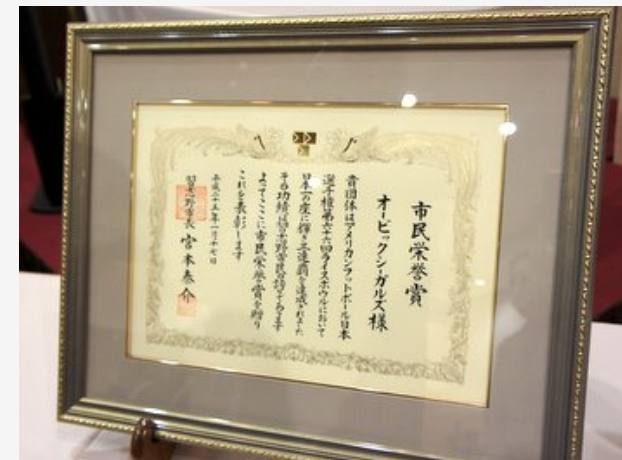 市民栄誉賞
オービックシーガルズ様
貴団体はアメリカンフットボール日本
選手権第六十六回ライスボウルにおいて
日本一の座に輝き三連覇を達成されました
その功績は習志野市民の誇りであります
よってここに市民栄誉賞を贈り
これを表彰します
平成二十五年一月二十七日
習志野市長 宮本泰介